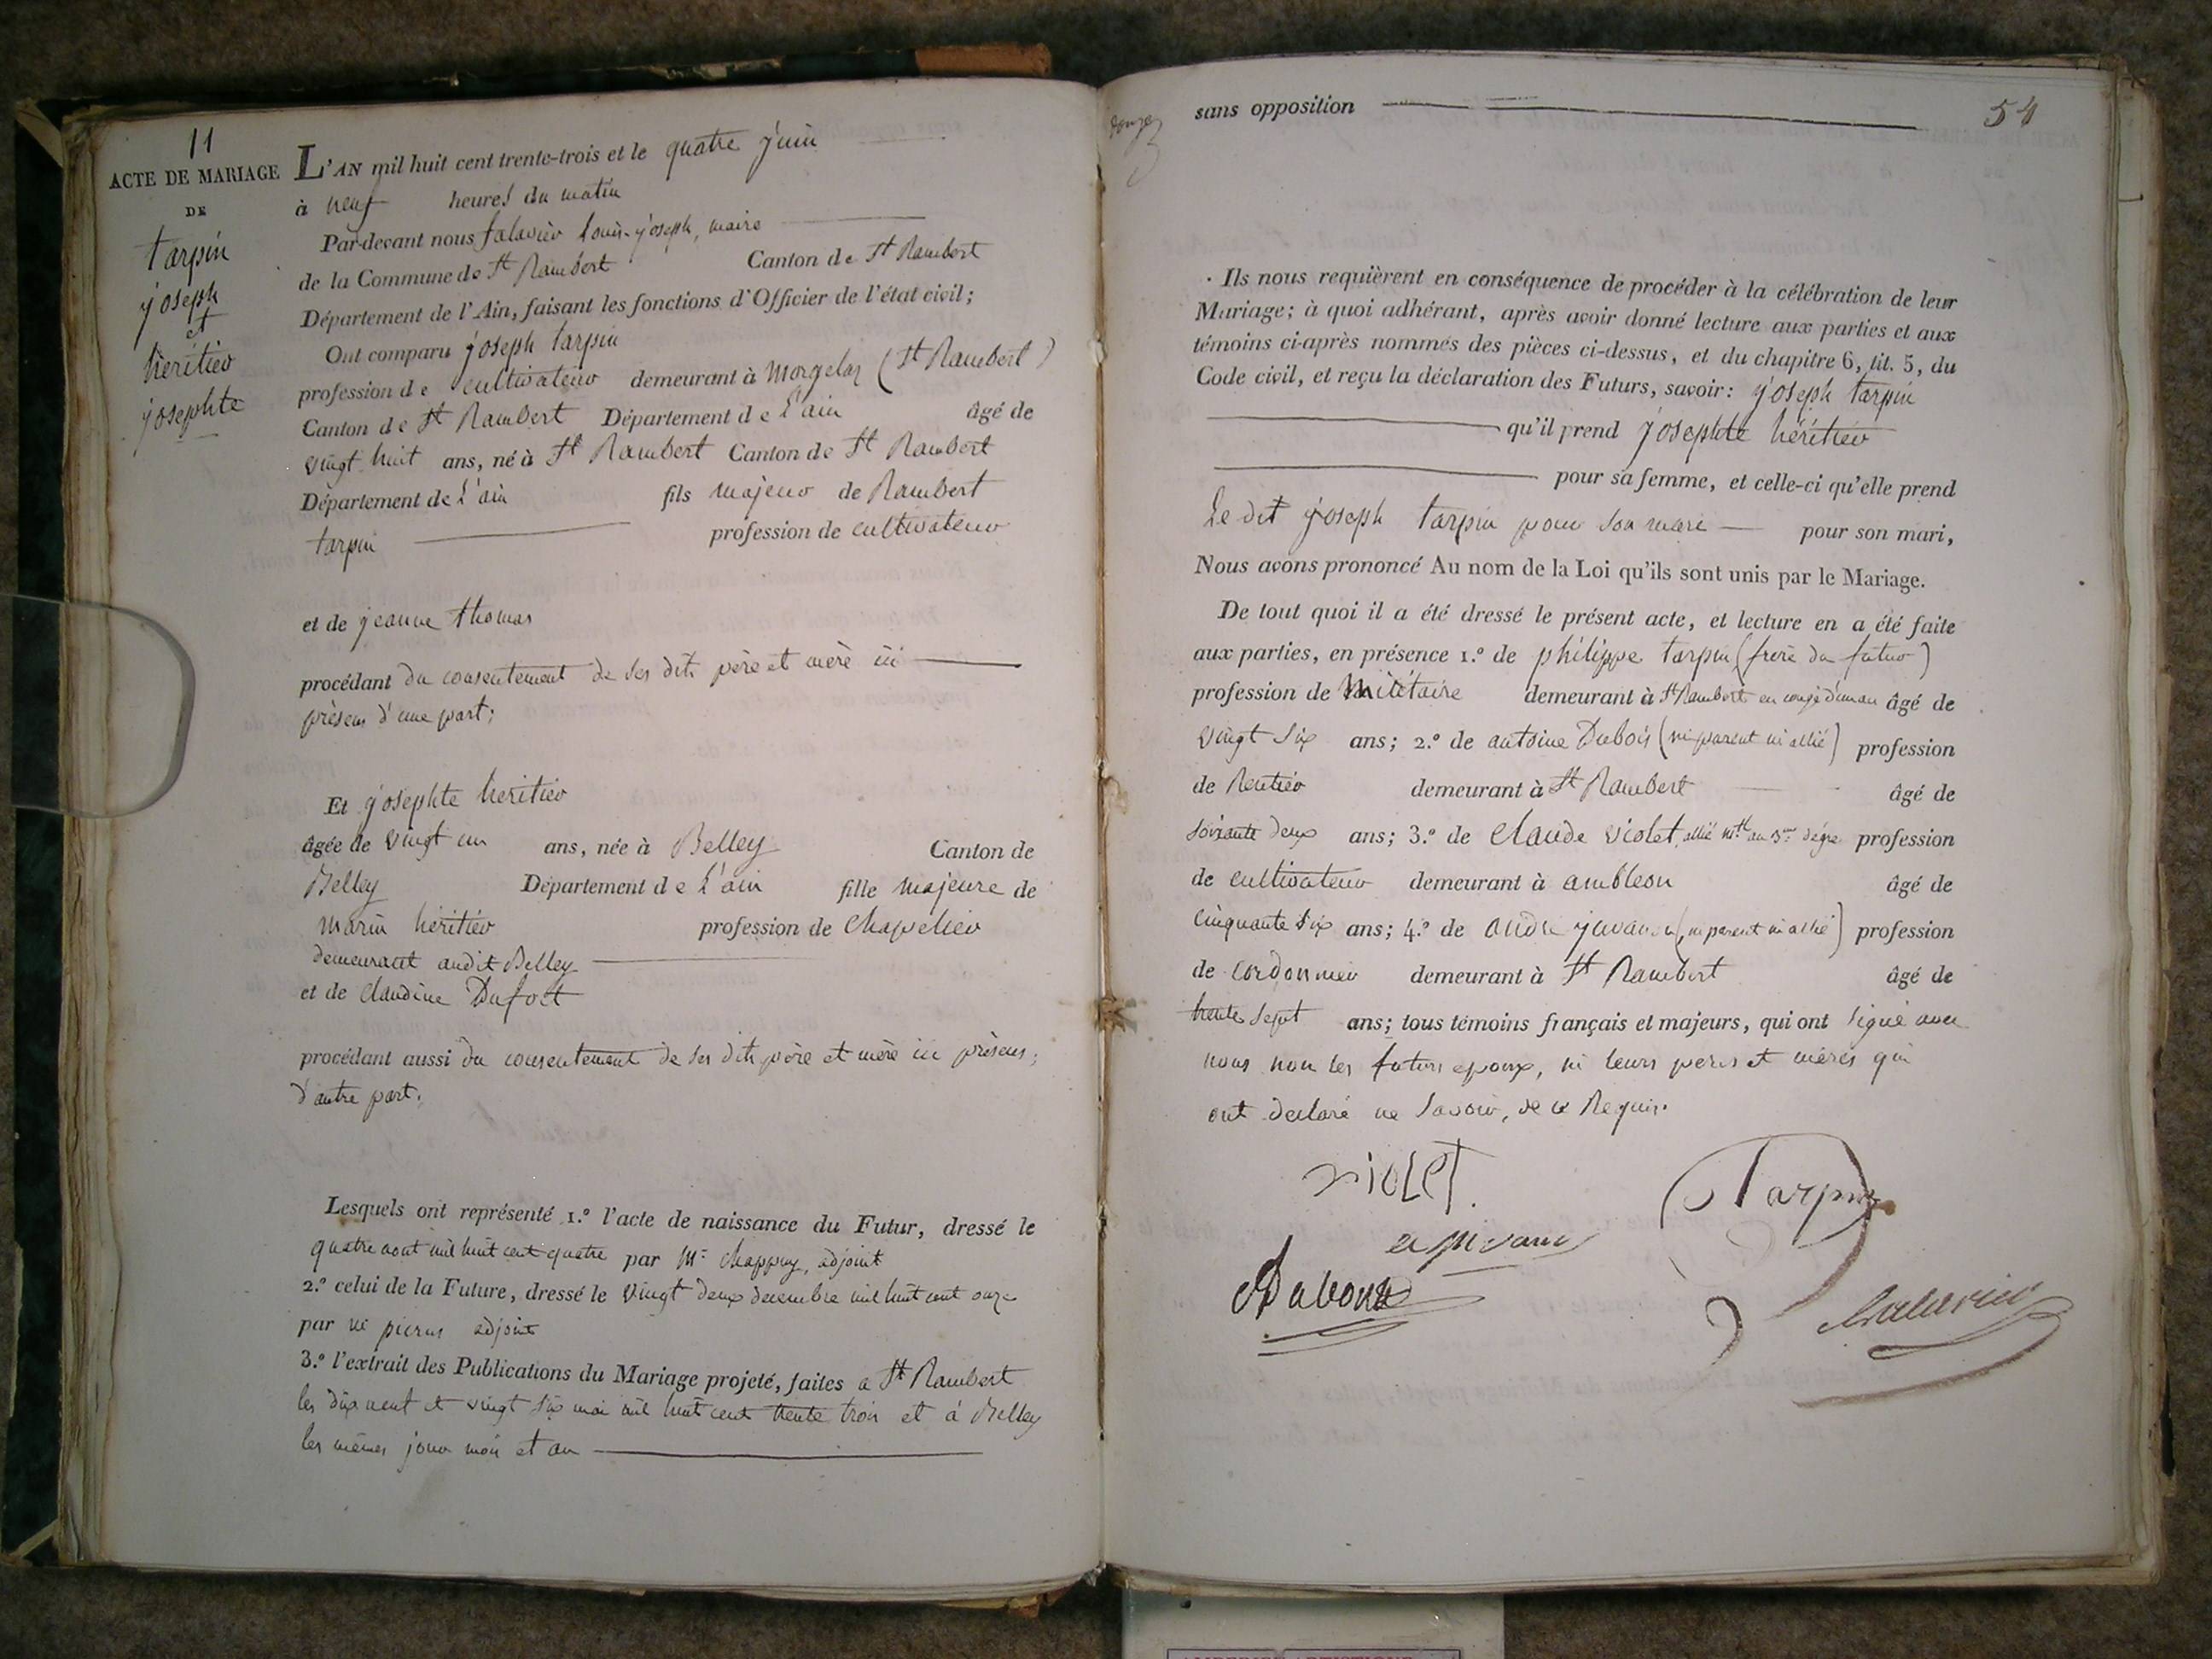 11
ACTE DE MARIAGE
DE
tarpin
joseph
et
héritier
josephte
L'AN mil huit cent trente-trois et le quatre juin
à neuf heures du matin
Par-devant nous falavier Louis-joseph, maire
de la Commune de St Rambert Canton de St Rambert
Département de l'Ain, faisant les fonctions d'Officier de l'état civil;
Ont comparu joseph tarpin
profession de cultivateur demeurant à Morgelas (St Rambert)
Canton de St Rambert Département de L'ain âgé de
vingt huit ans, né à St Rambert Canton de St Rambert
Département de L'ain fils majeur de Rambert
tarpin profession de cultivateur
et de jeanne thomas
procédant du consentement de ses dits père et mère ici
présens d'une part;
Et josephte héritier
âgée de vingt un ans, née à Belley Canton de
Belley Département de L'ain fille majeure de
marin héritier profession de chapelier
demeurant audit Belley
et de claudine Dufort
procédant aussi du consentement de ses dits père et mère ici présens;
d'autre part.
Lesquels ont représenté 1.º l'acte de naissance du Futur, dressé le
quatre aout mil huit cent quatre par Mr chappuy, adjoint
2.º celui de la Future, dressé le vingt deux decembre mil huit cent onze
par adjoint
3.º l'extrait des Publications du Mariage projeté, faites a St Rambert
les dix neuf et vingt six mai mil huit cent trente trois et à Belley
les mêmes jour mois et an
douze
sans opposition
54
Ils nous requièrent en conséquence de procéder à la célébration de leur
Mariage; à quoi adhérant, après avoir donné lecture aux parties et aux
témoins ci-après nommés des pièces ci-dessus, et du chapitre 6, tit. 5, du
Code civil, et reçu la déclaration des Futurs, savoir: joseph tarpin
qu'il prend josephte héritier
pour sa femme, et celle-ci qu'elle prend
Le dit joseph tarpin pour son mari pour son mari,
Nous avons prononcé Au nom de la Loi qu'ils sont unis par le Mariage.
De tout quoi il a été dressé le présent acte, et lecture en a été faite
aux parties, en présence 1.º de philippe tarpin (frère du futur)
profession de Militaire demeurant à St Rambert en congé d'un an âgé de
vingt six ans; 2.º de antoine Dubois (ni parent ni allié) profession
de Rentier demeurant à St Rambert âgé de
soixante deux ans; 3.º de claude violet, allié mtl au 3me degré profession
de cultivateur demeurant à ambleon âgé de
cinquante six ans; 4.º de andré juvanon (ni parent ni allié) profession
de cordonnier demeurant à St Rambert âgé de
trente sept ans; tous témoins français et majeurs, qui ont signé avec
nous non les futurs epoux, ni leurs peres et mères qui
ont declaré ne savoir, de ce Requis.
violet
Tarpin
Dubois
falavier